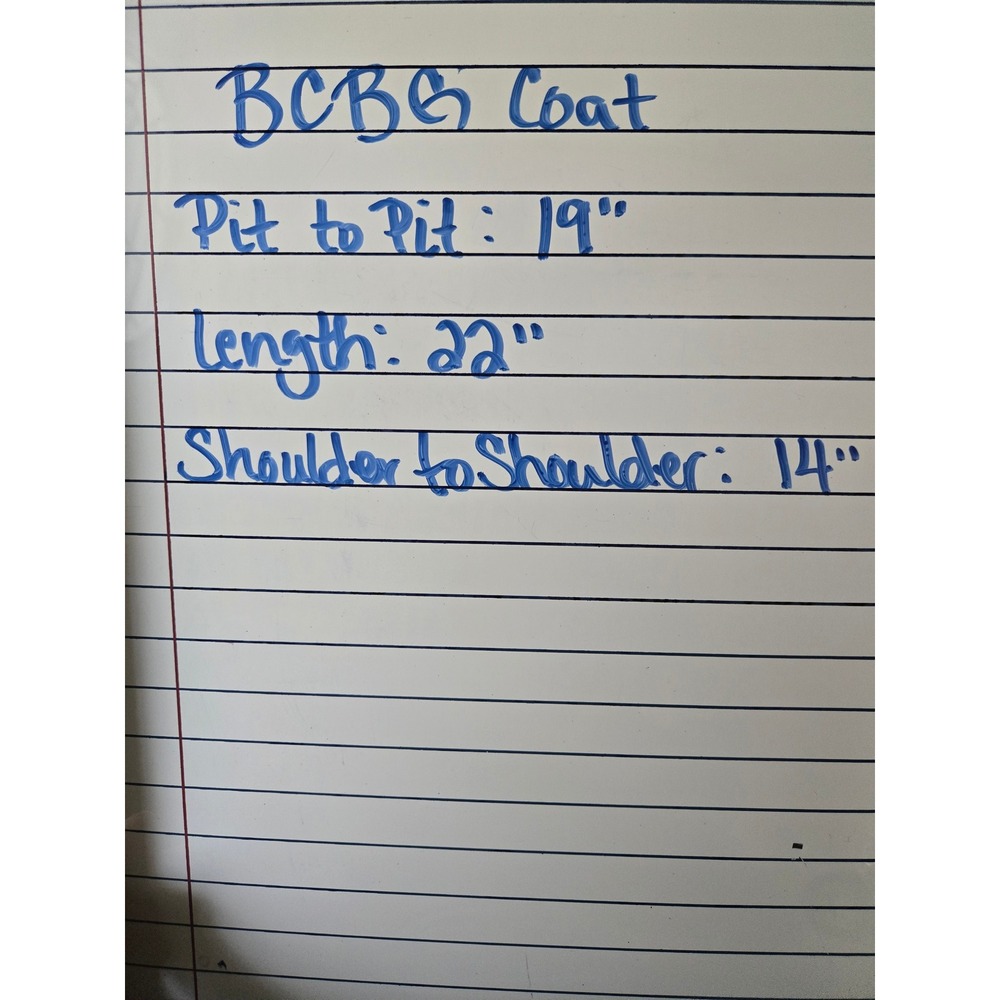 BCBG Coat
Pit to Pit: 19"
Length: 22"
Shoulder to Shoulder: 14"